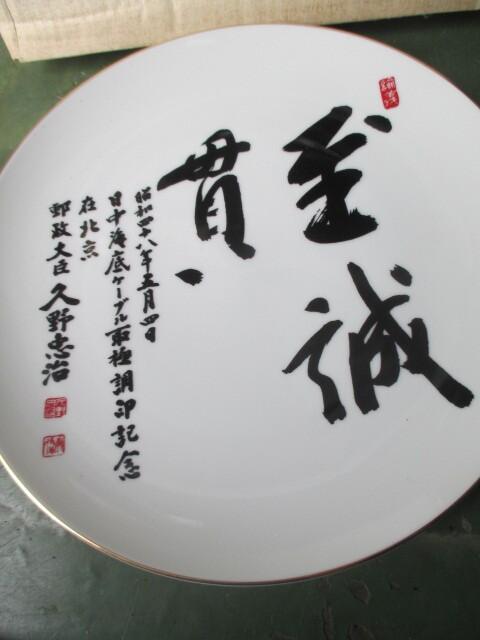 至誠
貫
昭和四十八年五月四日
日中海底ケーブル取極調印記念
在北京
郵政大臣 久野忠治